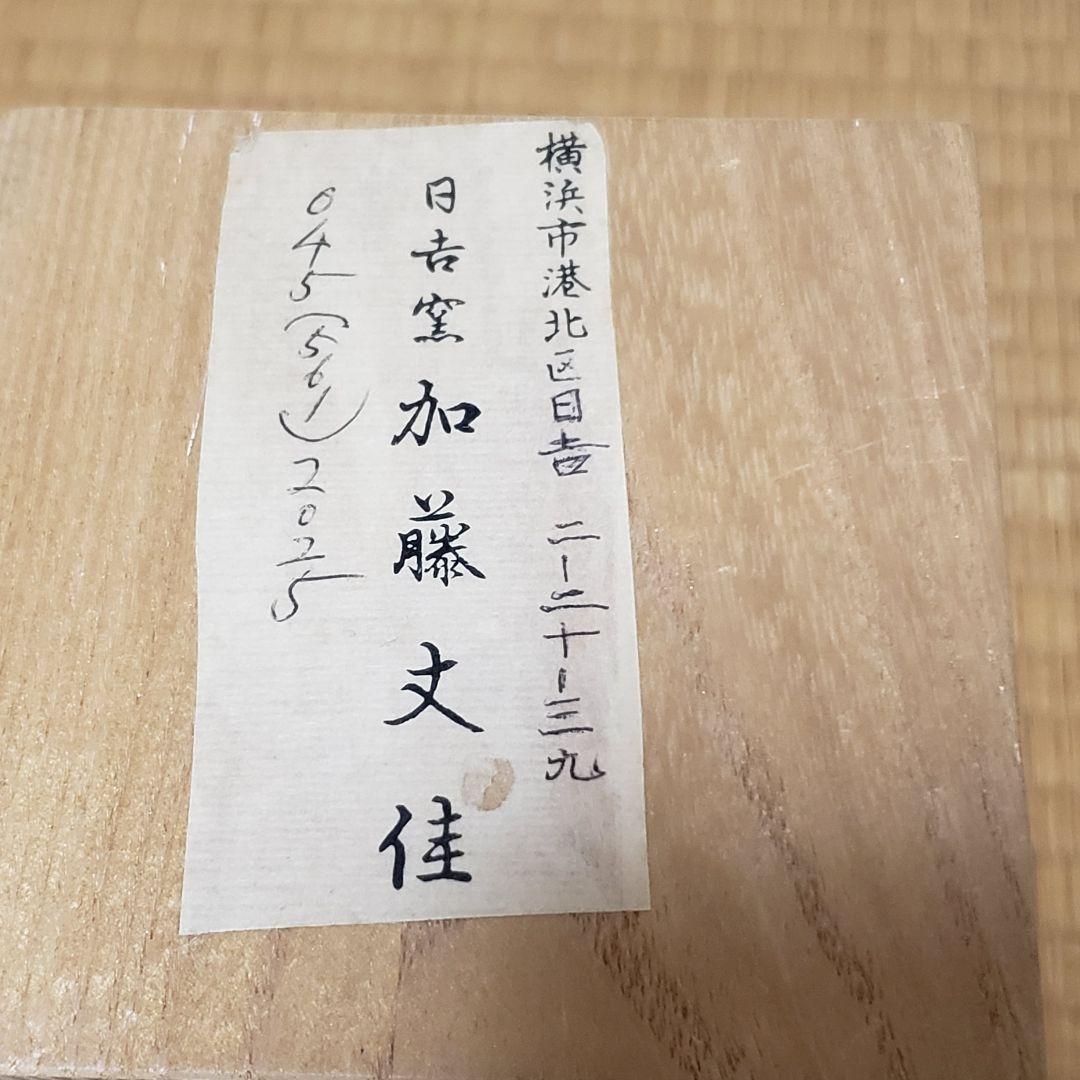 横浜市港北区日吉 二-二十-三九
日吉窯 加藤丈佳
045(561)2025